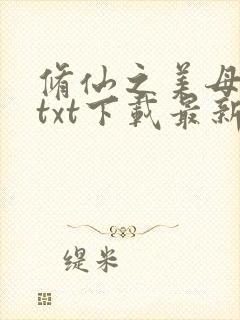 脩仙之美母
txt下載最新
缇米